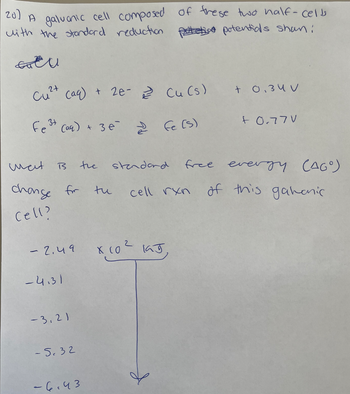 20) A galvanic cell composed of these two half-cells
with the standard reduction potentials shown:
Cu²⁺ (aq) + 2e- ⇌ Cu (s) + 0.34 V
Fe³⁺ (aq) + 3e⁻ ⇌ Fe (s) + 0.77 V
What is the standard free energy (ΔG°)
change for the cell rxn of this galvanic
cell?
- 2.49 x 10² kJ
- 4.31
- 3.21
- 5.32
- 6.43